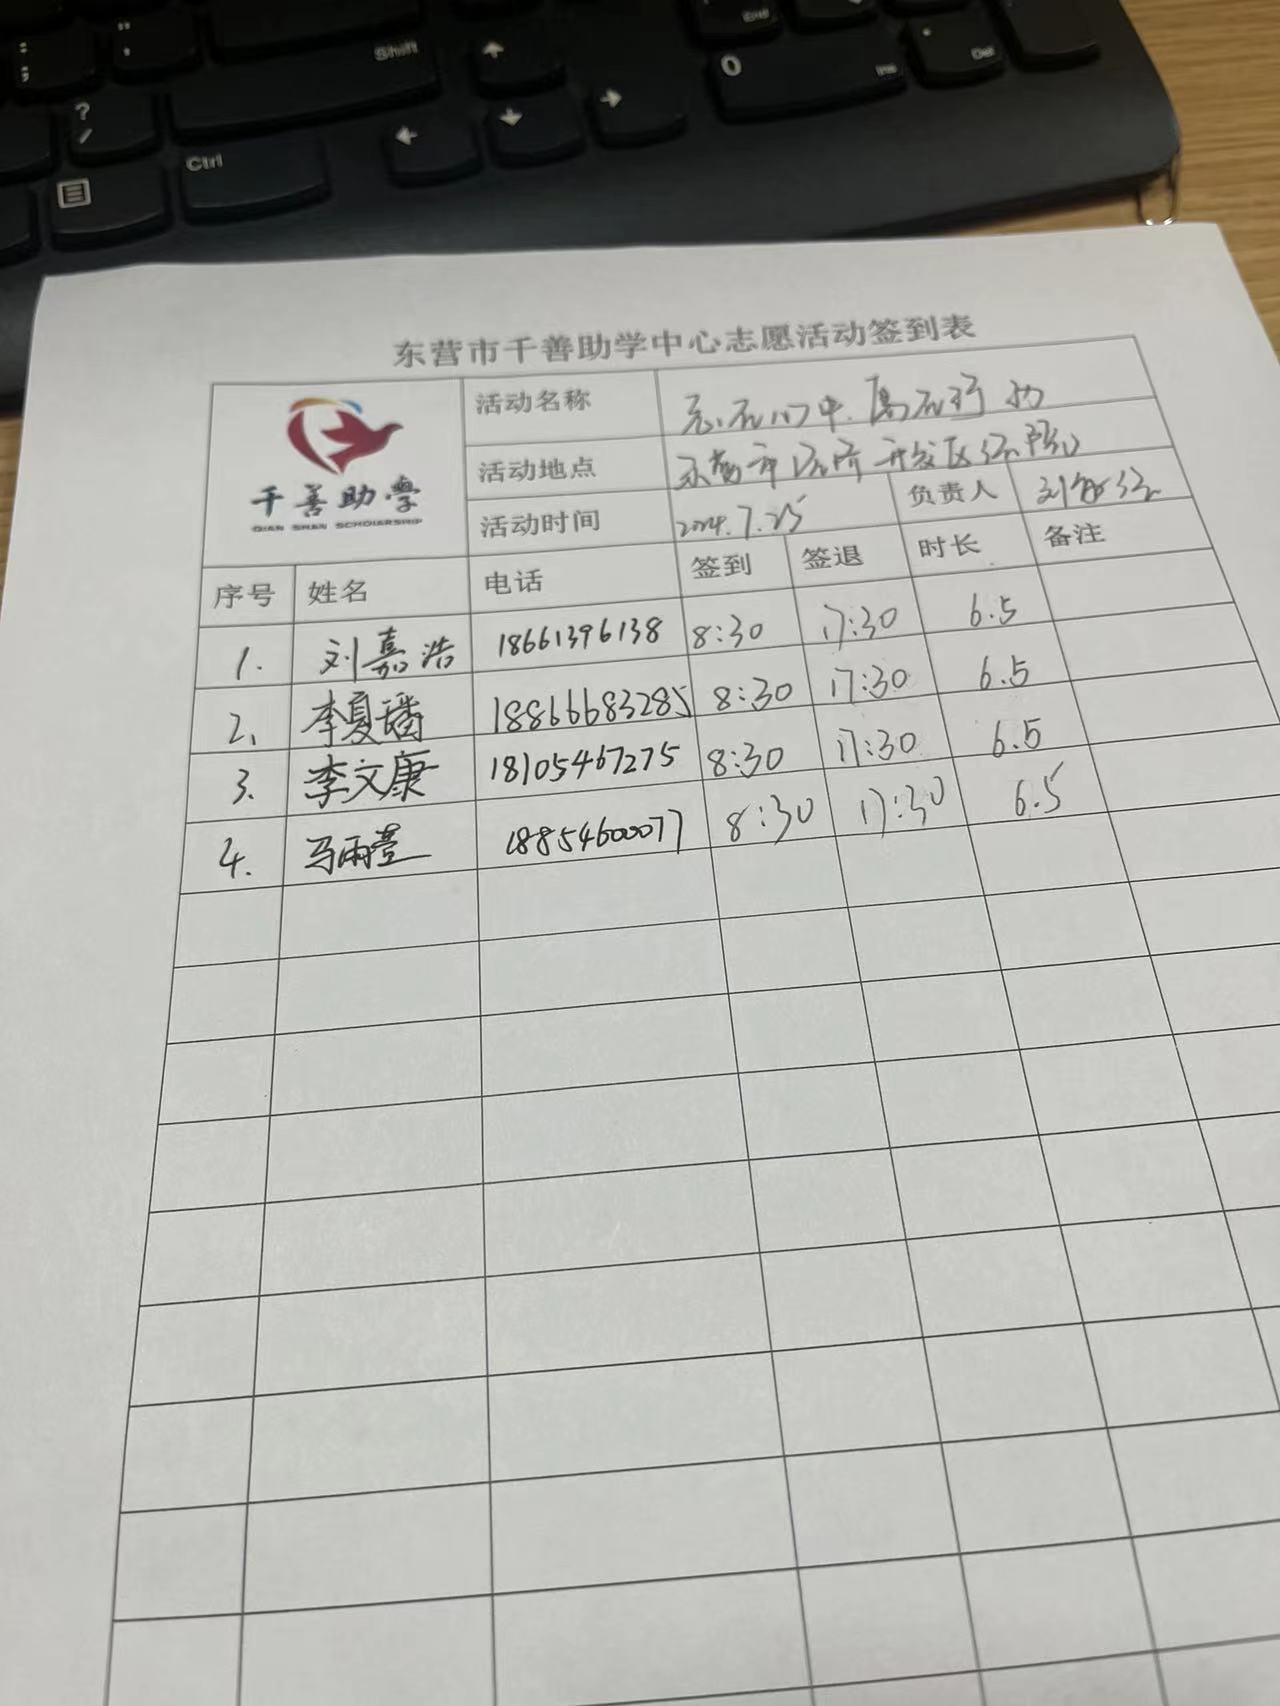 End
0
Ins
.
Del
Shift
?
/
Ctrl
东营市千善助学中心志愿活动签到表
千善助学
QIAN SHAN SCHOLARSHIP
活动名称
活动地点 东营市经济开发区
活动时间 2024.7.25 负责人
序号 姓名 电话 签到 签退 时长 备注
1. 刘嘉浩 18661396138 8:30 17:30 6.5
2. 李夏璠 18866683285 8:30 17:30 6.5
3. 李文康 18105467275 8:30 17:30 6.5
4. 马雨萱 18854600077 8:30 17:30 6.5